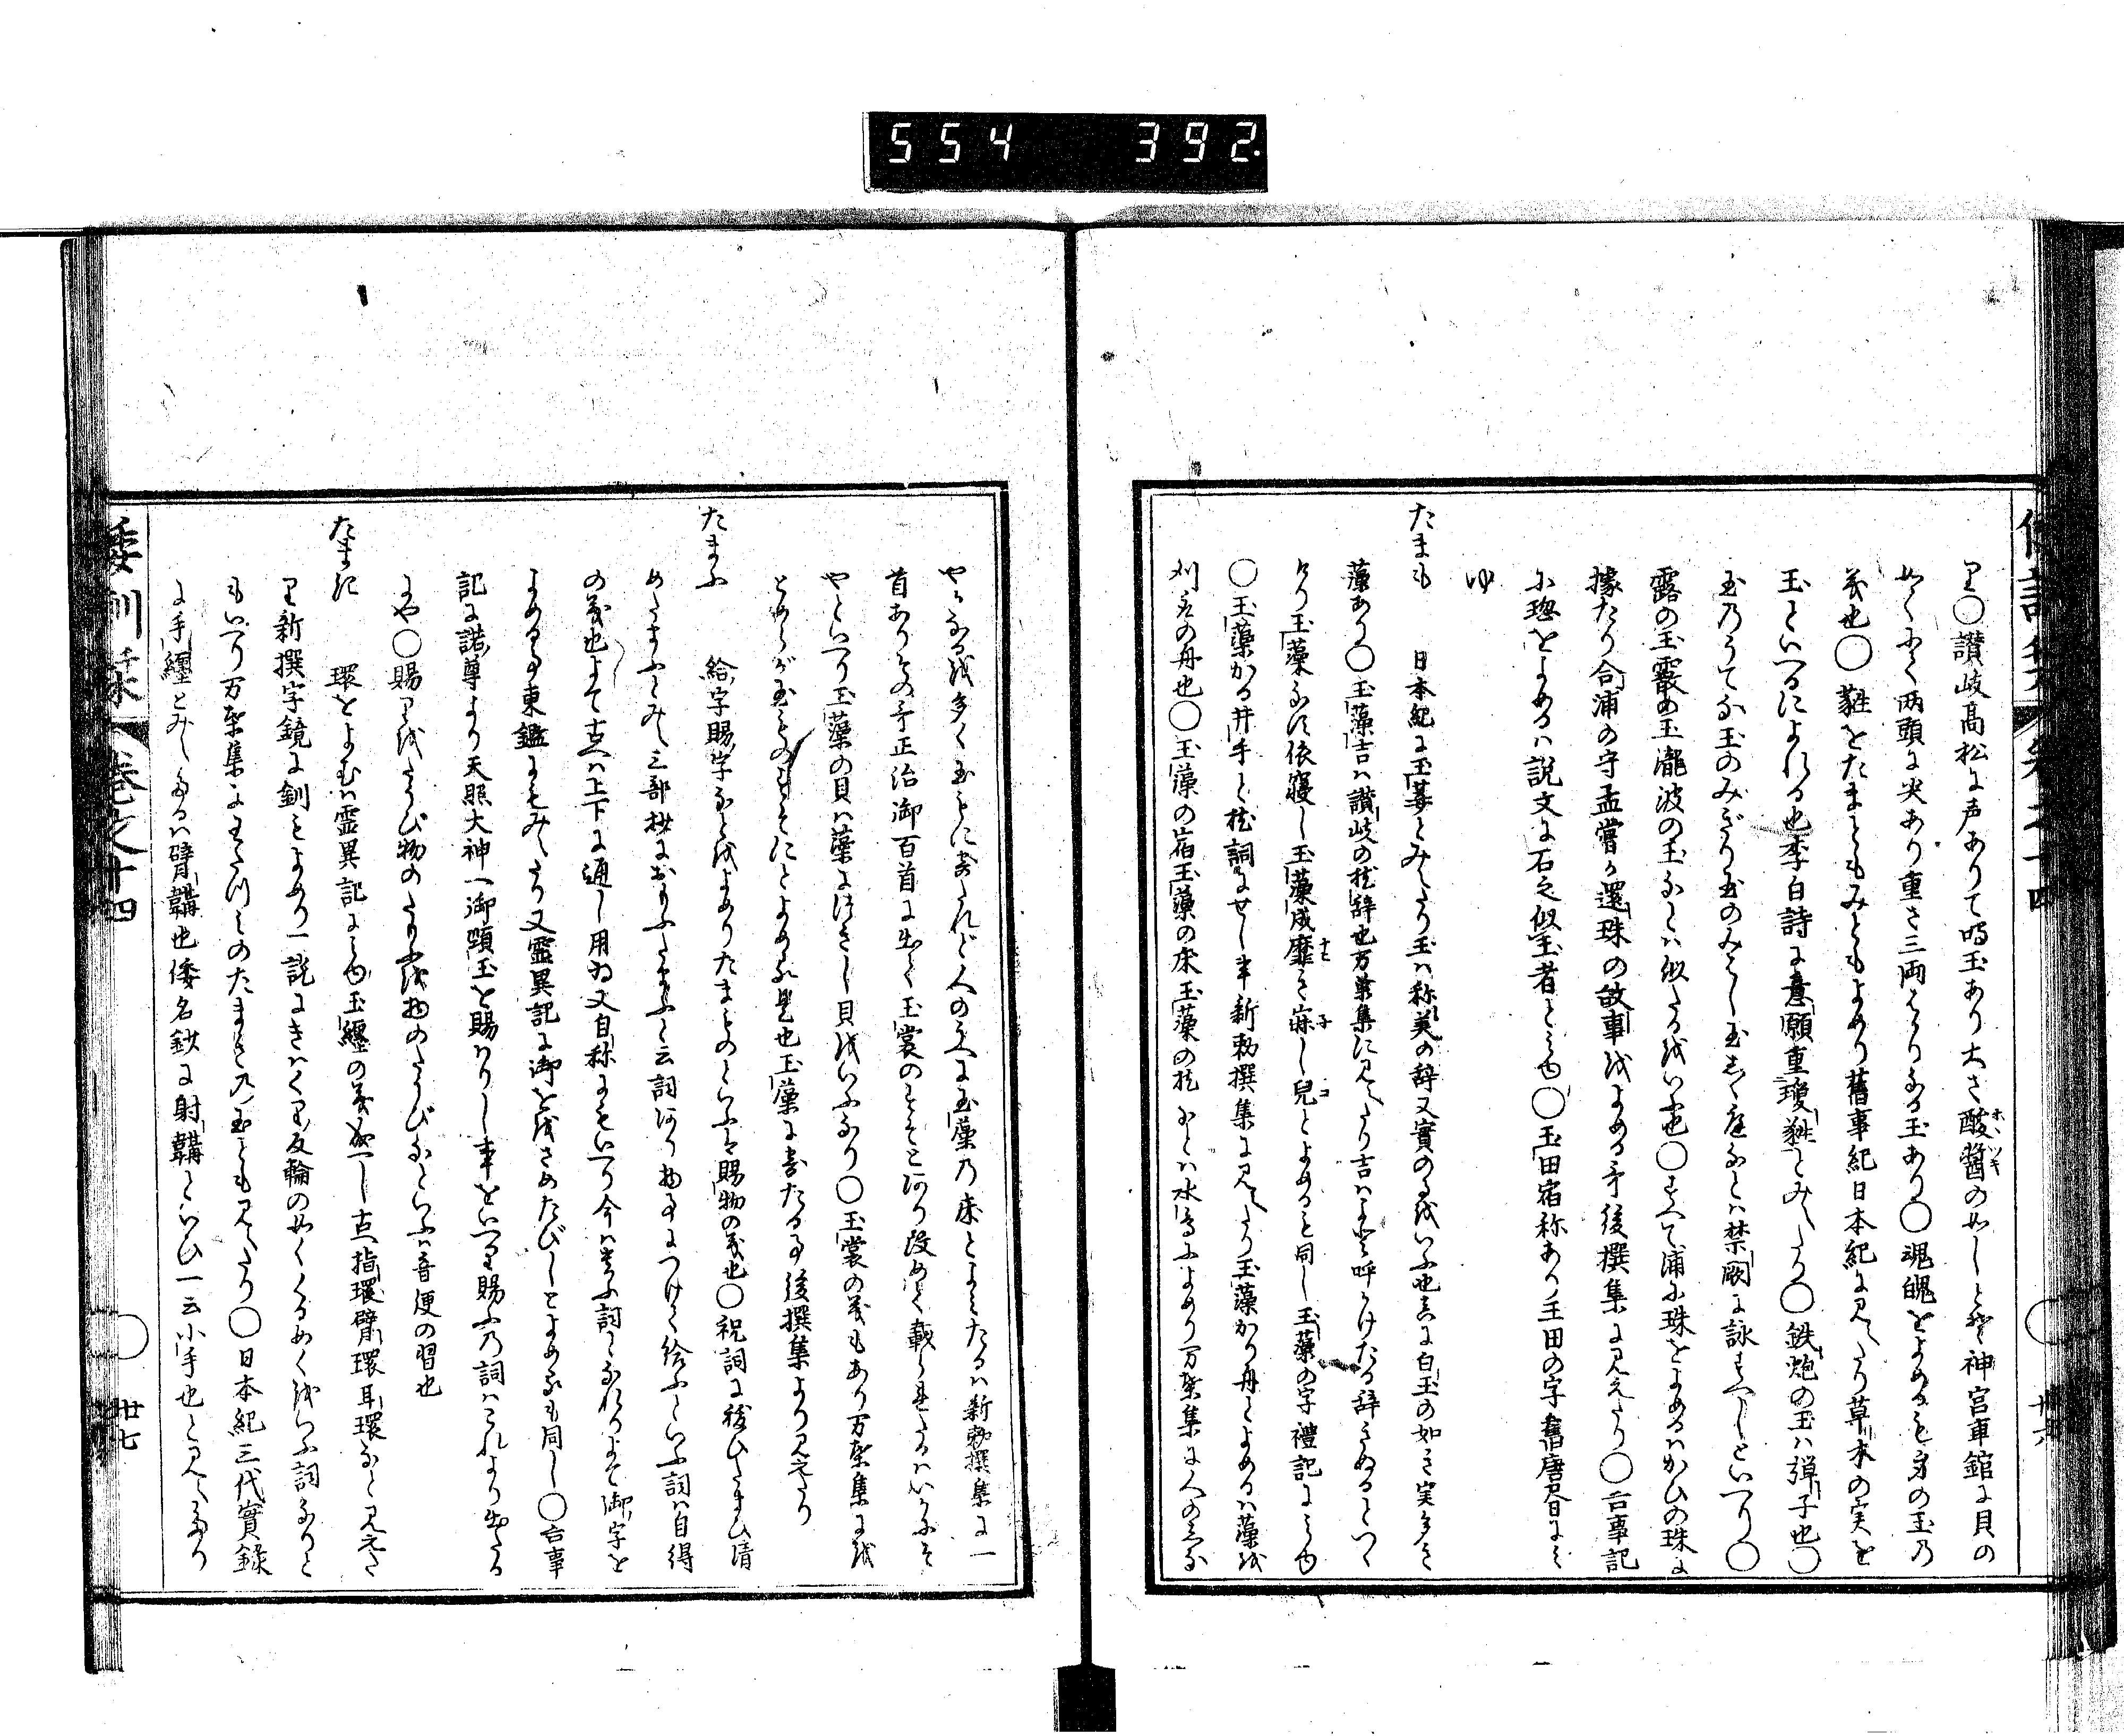 554 392
り○讃岐高松に声ありて鳴玉あり大さ酸醬の如しとぞ神宮車館に貝の
如くにて両頭に尖あり重さ三両はかりなる玉あり○魂魄をよめるも身の玉乃
義也○黈をたまともみともよめり舊事紀日本紀に見えたり草木の実を
玉といへるによれる也李白詩に意願重瓊蕤とみえたり○鉄炮の玉ハ弾子也○
玉乃うてな玉のみぎり玉のみはし玉しく庭なとハ禁闕に詠すへしといへり○
露の玉霰の玉瀧波の玉なとハ似たるをいふ也○すへて浦に珠をよめるハかひの珠に
據たり合浦の守孟嘗か還珠の故事をよめる哥後撰集に見えたり○古事記
に璁をよめるハ説文に石之似玉者とみゆ○玉田宿祢あり王田の字舊唐書にみ
ゆ
たまも 日本紀に玉藻とみえたり玉ハ称美の辞又實のるをいふ也実に白玉の如き実多き
藻あり○玉藻吉ハ讃岐の枕辞也万葉集に見えたり吉ハよと呼かけたる辞
けり玉藻なす依寝し玉藻成靡き寐し兒とよめると同し玉藻の字禮記にみゆ
○玉藻かる井手と枕詞にせし事新勅撰集に見えたり玉藻かり舟とよめるハ藻を
刈る舟也○玉藻の宿玉藻の床玉藻の枕なとハ水鳥によめり万葉集に人の
卷之十四
卅六
やとるを多く玉もに寄たれど人のうへに玉藻乃床とよみたるハ新勅撰集に一
首ありその哥正治御百首に出て玉裳のすそとあり改めて載られたるハいかにそ
やといへり玉藻の貝ハ藻につきし貝をいふなり○玉裳の義もあり万葉集に
とめらが玉ものすそにとよめる是也玉藻に寄たる事後撰集より見えたり
たまふ 給字賜字なとをよめりたまものといふも賜物の義也○祝詞に祓ひたまひ清
めたまふとみえ三部抄におもふたまふと云詞あり物事につけて給ふといふ詞ハ自得
の義也よて古へハ上下に通し用ゐ又自称にもいへり今ハ崇ふ詞となれりよて御字を
よめる事東鑑にもみえたり又靈異記に御をおさめたびしとよめるも同し○古事
記に諾尊より天照大神へ御頸玉を賜ハりし事をいへり賜ふ乃詞ハこれより出たる
にや○賜りをたうび物のたまふを物のたうびなといふハ音便の習也
たまき 環をよむハ霊異記にみゆ玉纏の義なるへし古へ指環臂環耳環なと見えた
り新撰字鏡に釧をよめり一説にきハくり反輪の如くくるめくをいふ詞なりと
もいへり万葉集にわたつみのたまきの玉とも見えたり○日本紀三代實録
に手纏とみえたるハ臂韝也倭名鈔に射韝といひ一云小手也と見えたり
倭訓栞 卷之十四
卅七